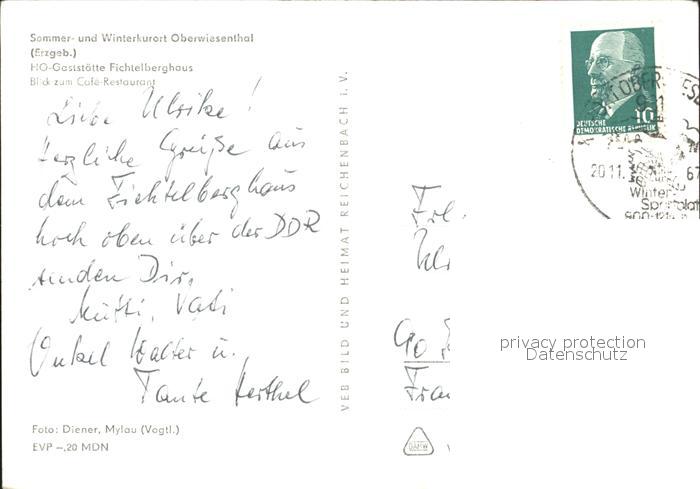 Sommer- und Winterkurort Oberwiesenthal
(Erzgeb.)
HO-Gaststätte Fichtelberghaus
Blick zum Café-Restaurant
Liebe Ulrike!
Herzliche Grüße aus
dem Fichtelberghaus
hoch oben über der DDR
senden Dir,
Mutti, Vati
Onkel Walter u.
Tante Herthel
Foto: Diener, Mylau (Vogtl.)
EVP –,20 MDN
VEB BILD UND HEIMAT REICHENBACH i. V.
10
DEUTSCHE
DEMOKRATISCHE REPUBLIK
20.11. 67
Winter-
Frl.
Ulr
privacy protection
Datenschutz
Fran